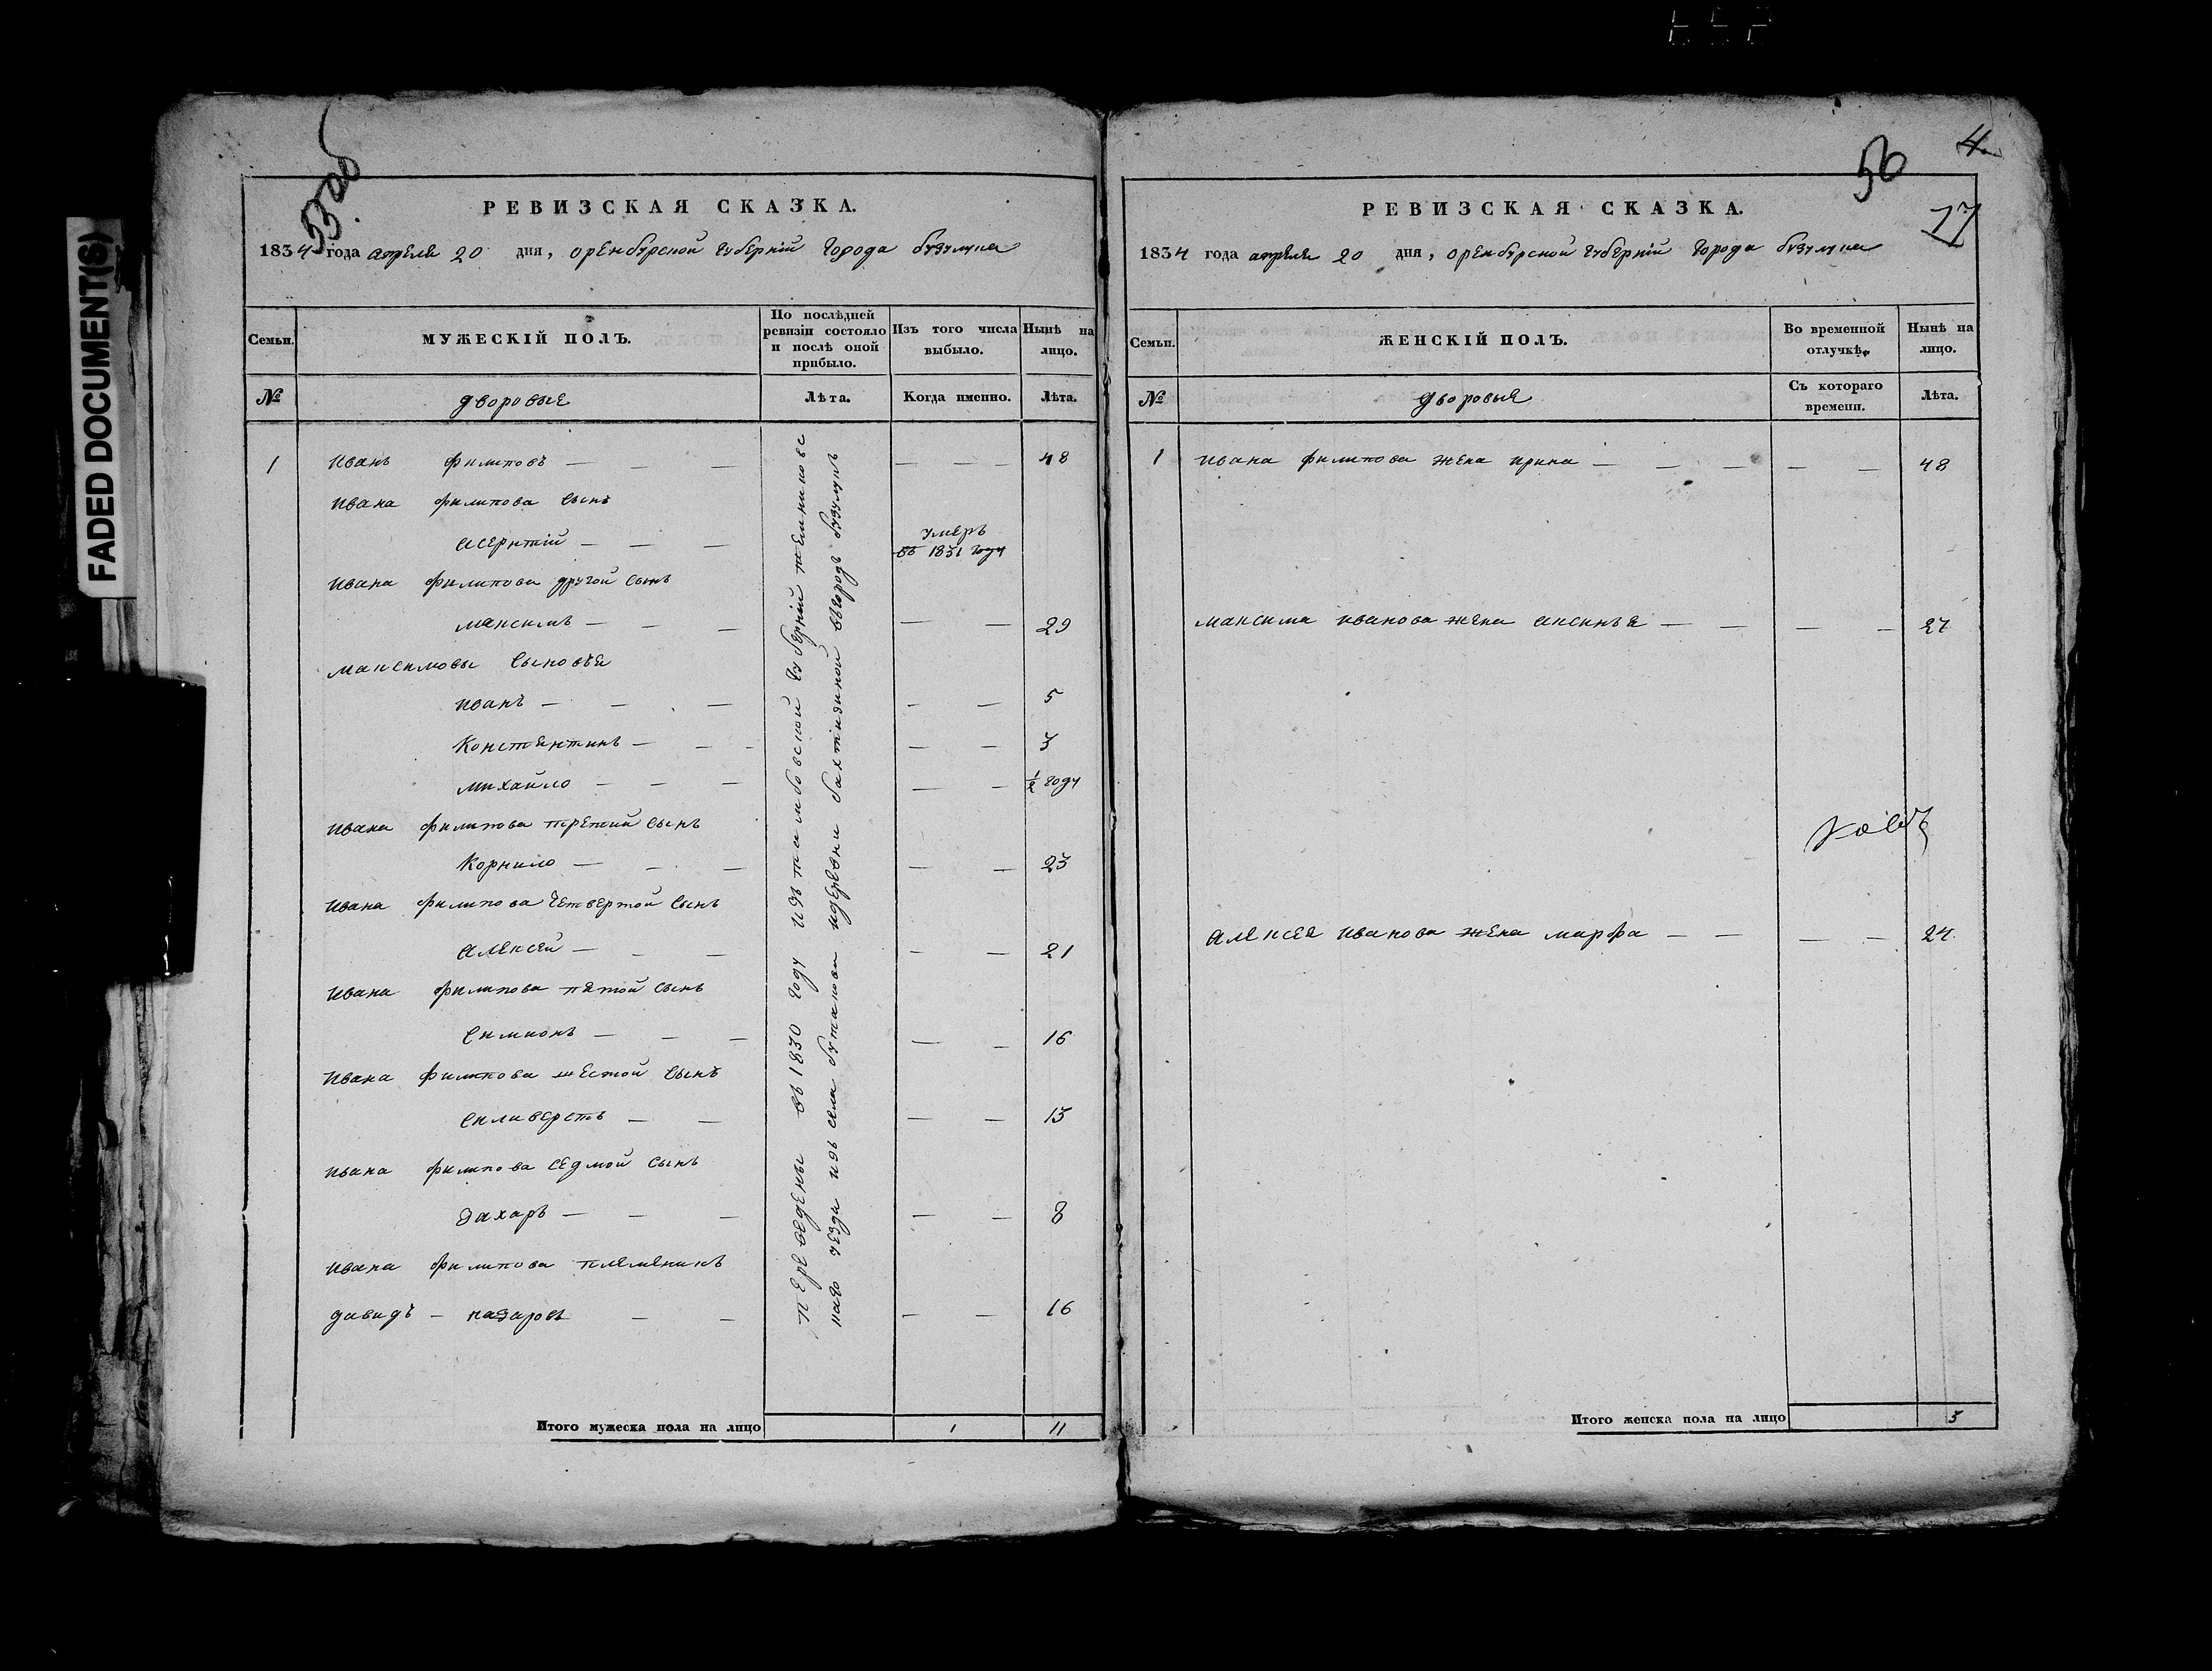 FADED DOCUMENT(S)
53об
РЕВИЗСКАЯ СКАЗКА.
1834 года апреля 20 дня, оренбурской губерніи города бузулука
Семьи.
МУЖЕСКІЙ ПОЛЪ.
По послѣдней ревизіи состояло и послѣ оной прибыло.
Изъ того числа выбыло.
Нынѣ на лицо.
№
дворовые
Лѣта.
Когда именно.
Лѣта.
1 иванъ филиповъ — — — — — — 48
ивана филипова сынъ
умеръ
въ 1831 году
ивана филипова другой сынъ
максимъ — — — — — 29
максимовы сыновья
иванъ — — — — — 5
Константинъ — — — — — 3
михайло — — — — — 1/2 году
ивана филипова третий сынъ
Корнило — — — — — 23
ивана филипова четвертой сынъ
алексей — — — — — 21
ивана филипова пятой сынъ
симионъ — — — — — 16
ивана филипова шестой сынъ
силиверстъ — — — — 13
ивана филипова седмой сынъ
захаръ — — — — — 8
ивана филипова племяникъ
давидъ — назаровъ — — — — 16
переведены въ 1830 году изъ тамбовской губерніи темниковс
каго уезда изъ села бутакова идеревни бахтизиной вгородъ бузулукъ
Итого мужеска пола на лицо 1 11
4
50
17
РЕВИЗСКАЯ СКАЗКА.
1834 года апреля 20 дня, оренбурской губерніи города бузулука
Семьи.
ЖЕНСКІЙ ПОЛЪ.
Во временной отлучкѣ.
Нынѣ на лицо.
№
дворовые
Съ котораго времени.
Лѣта.
1 ивана филипова жена ирина — — — — — 48
максима иванова жена аксинья — — — — 27
алексея иванова жена марфа — — — — 24
Итого женска пола на лицо 3